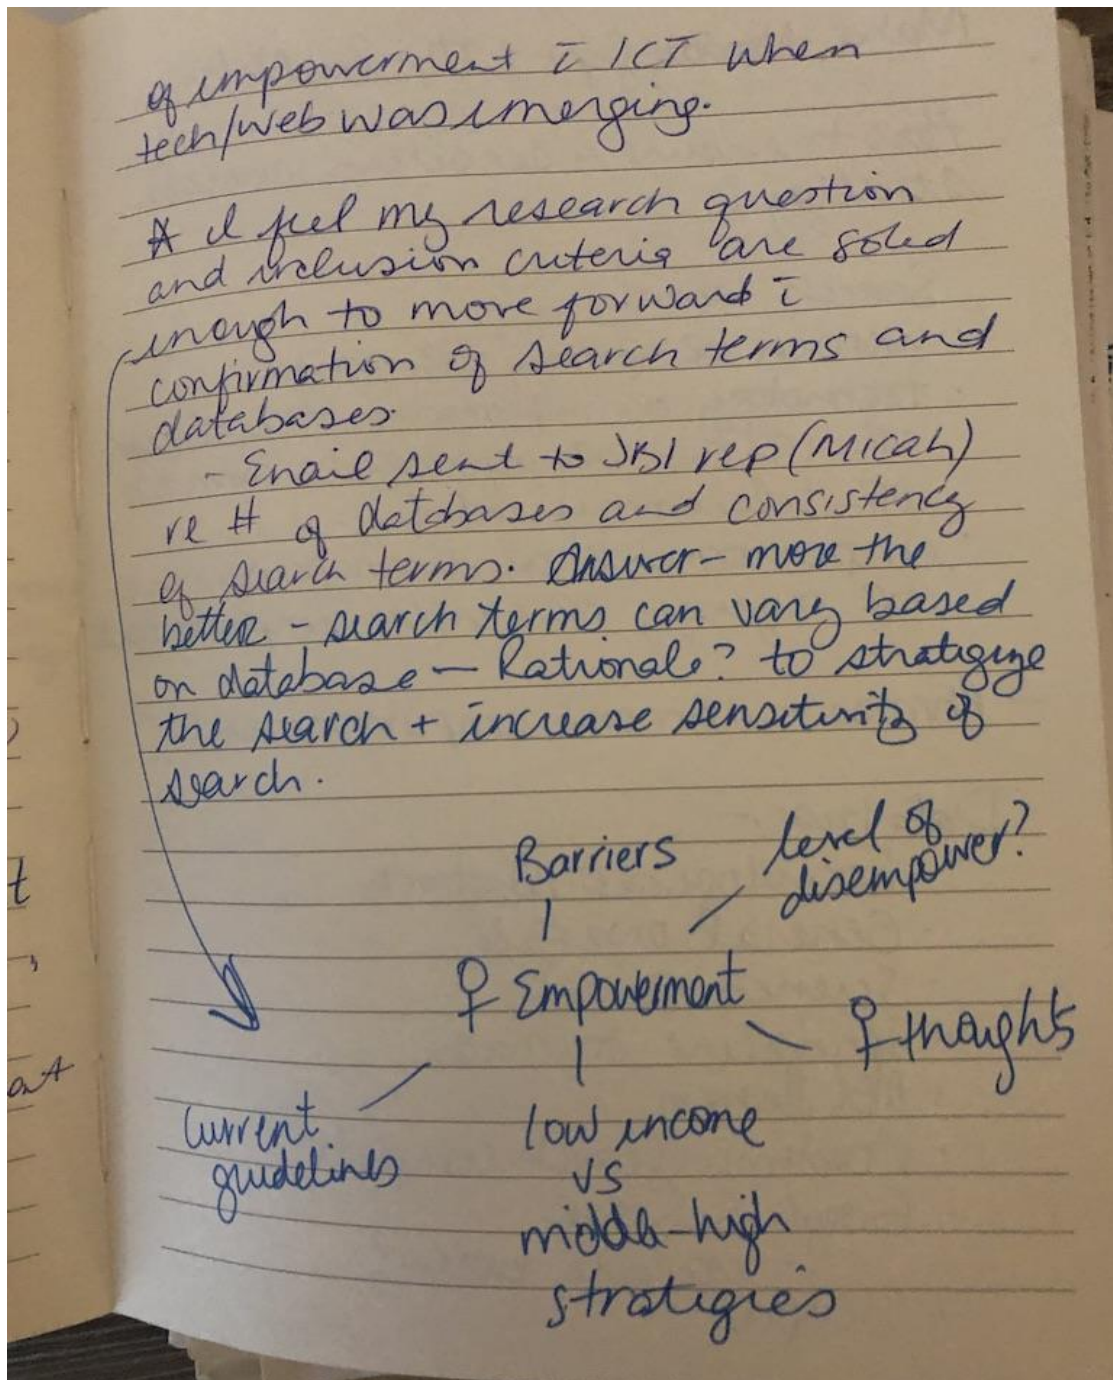 of empowerment c̄ ICT when
tech/web was emerging.
* I feel my research question
and inclusion criteria are solid
enough to move forward c̄
confirmation of search terms and
databases.
- Email sent to JBI rep (Micah)
re # of databases and consistency
of search terms. Answer - more the
better - search terms can vary based
on database — Rationale? to strategize
the search + increase sensitivity of
search.
Barriers
level of
disempower?
♀ Empowerment
♀ thoughts
Current
guidelines
low income
vs
middle-high
strategies
t
,